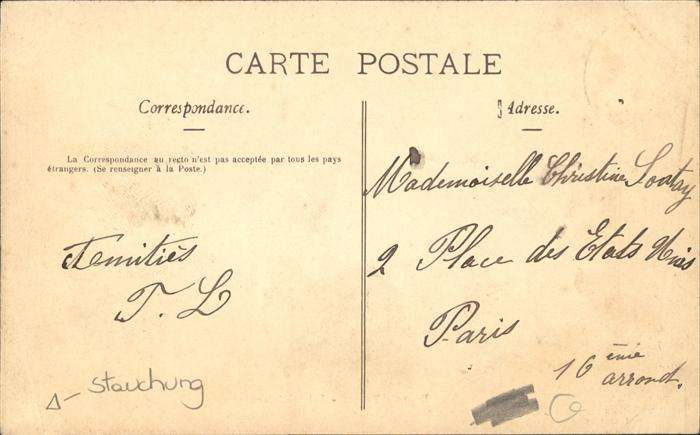 CARTE POSTALE
Correspondance.
La Correspondance au recto n'est pas acceptée par tous les pays
étrangers. (Se renseigner à la Poste.)
Amitiés
T. L
Stauchung
Adresse.
Mademoiselle Christine
2 Place des Etats Unis
Paris
16 ème
arrond.